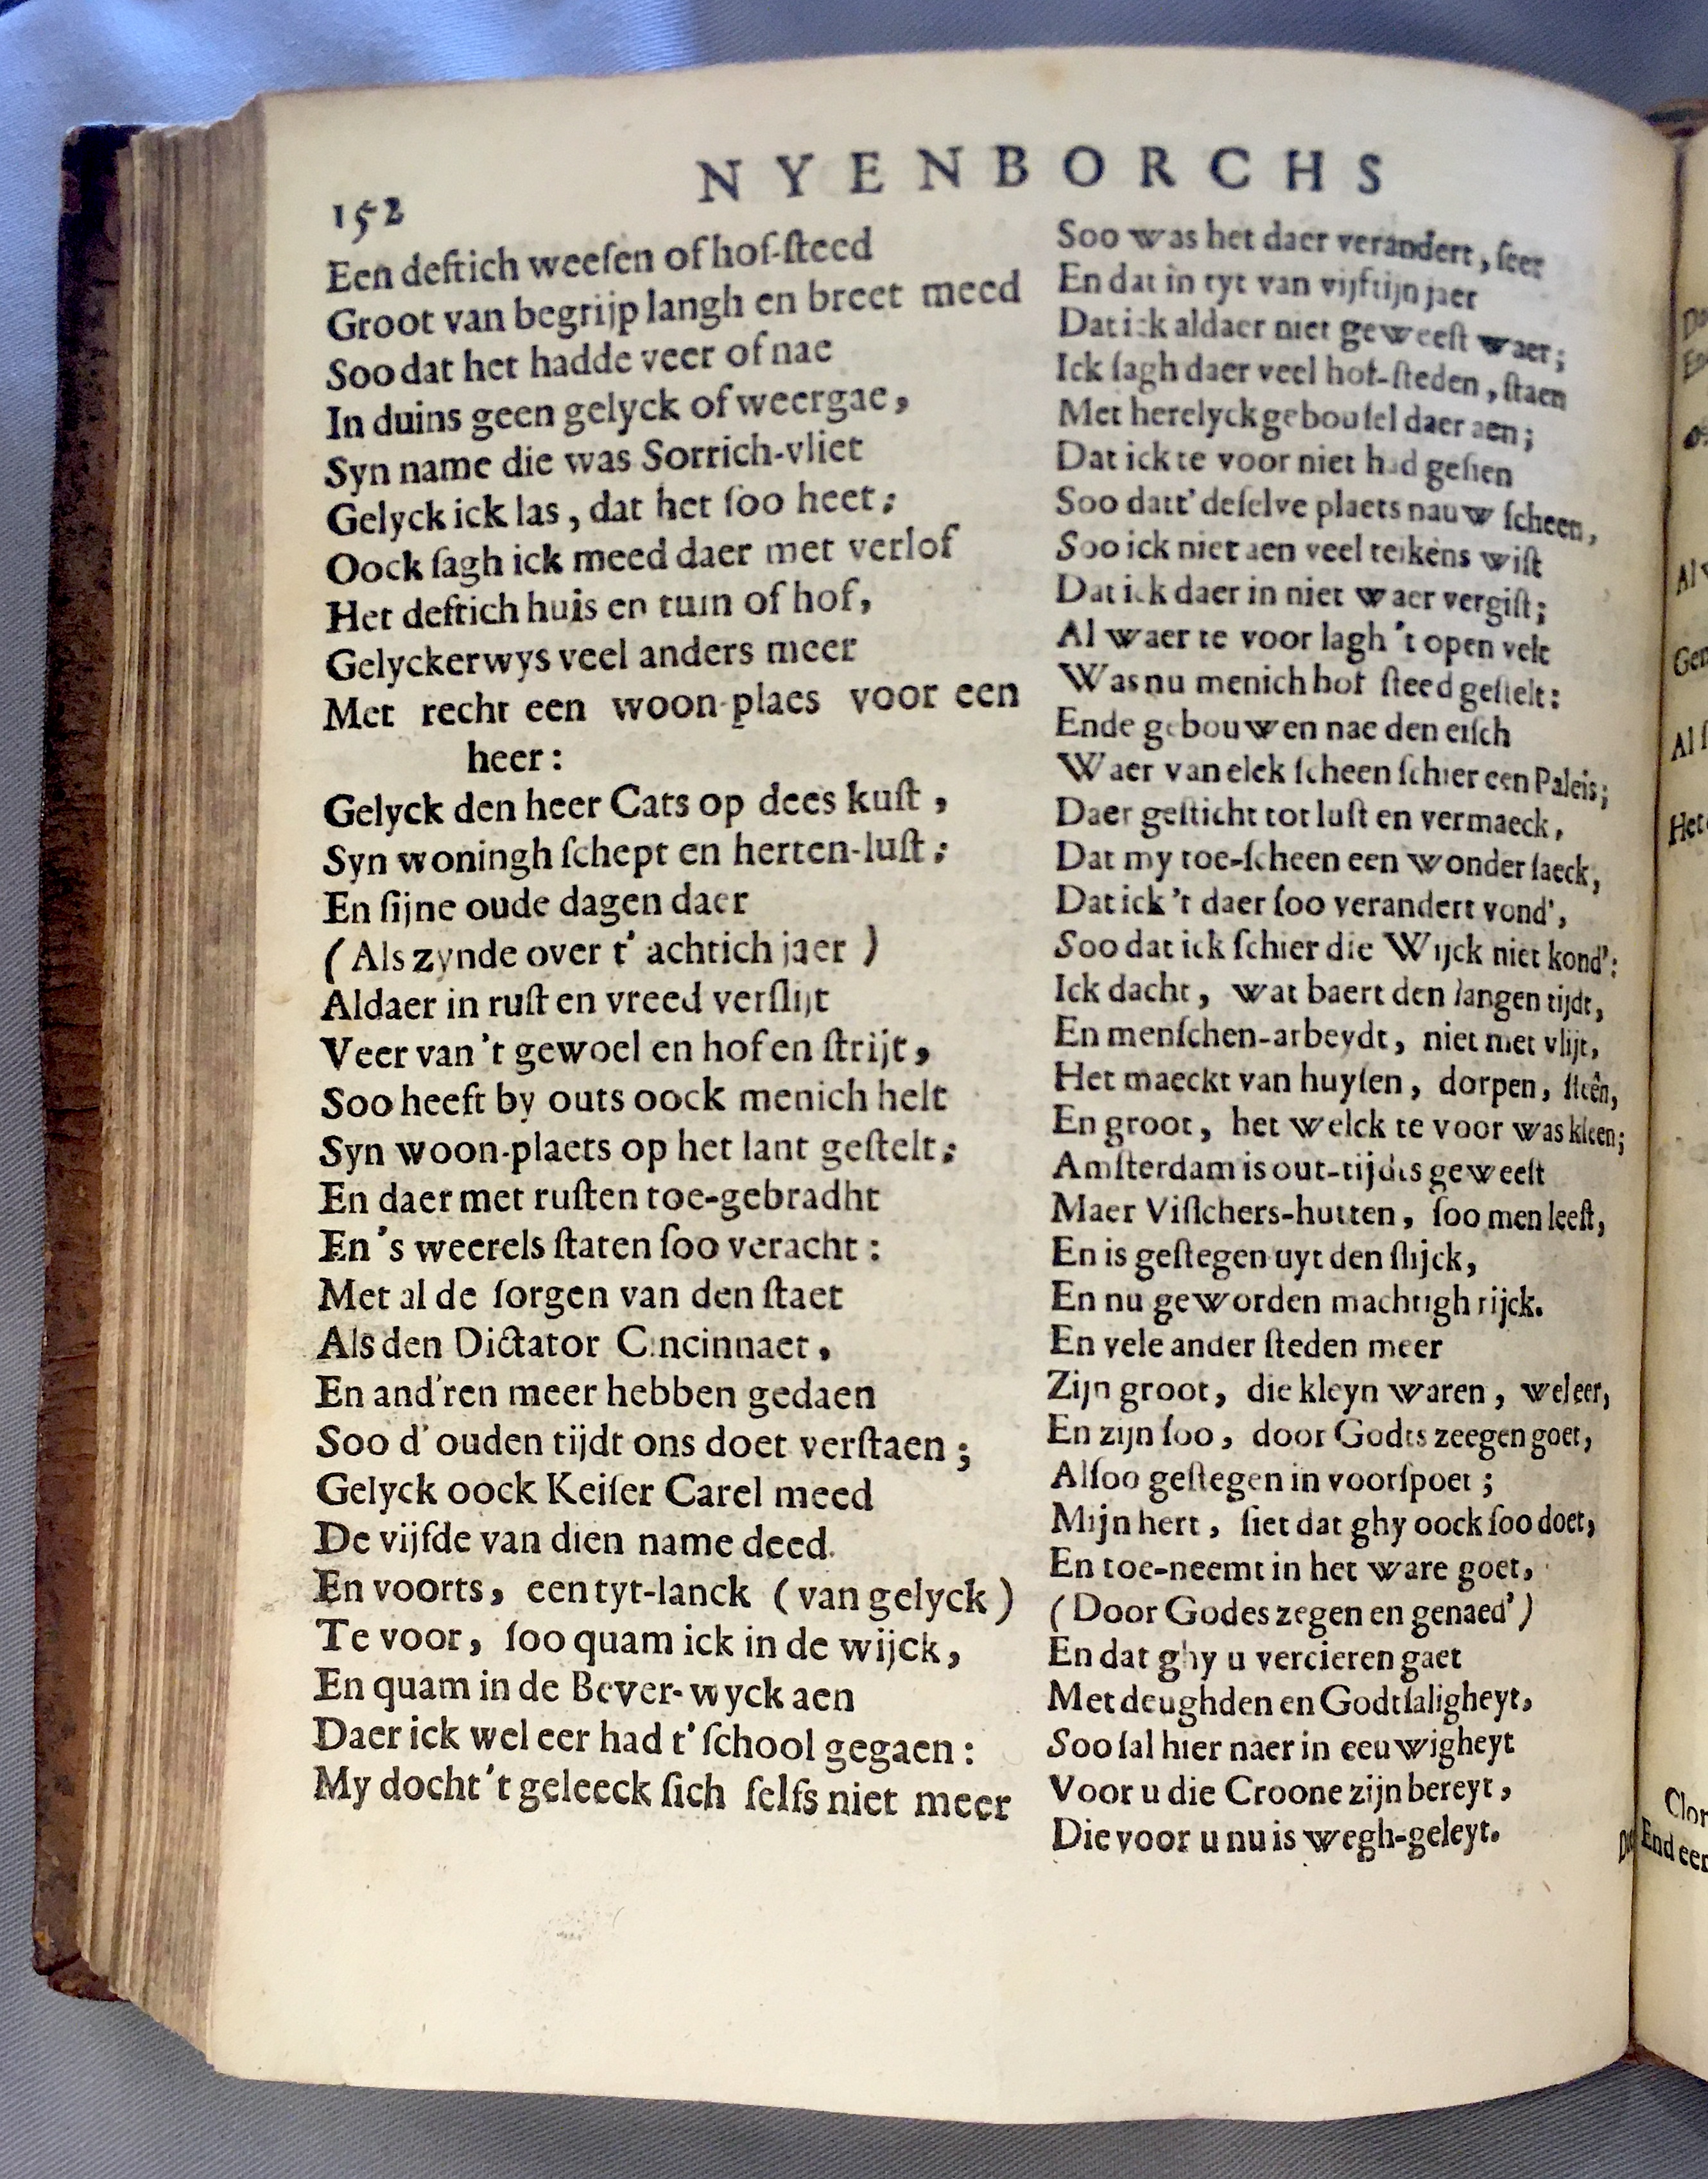 152
NYENBORCHS
Een deftich weeſen of hof-ſteed
Groot van begrijp langh en breet meed
Soo dat het hadde veer of nae
In duins geen gelyck of weergae,
Syn name die was Sorrich-vliet
Gelyck ick las, dat het ſoo heet;
Oock ſagh ick meed daer met verlof
Het deftich huis en tuin of hof,
Gelyckerwys veel anders meer
Met recht een woon-plaes voor een
heer:
Gelyck den heer Cats op dees kuſt,
Syn woningh ſchept en herten-luſt;
En ſijne oude dagen daer
(Als zynde over t' achtich jaer)
Aldaer in ruſt en vreed verſlijt
Veer van 't gewoel en hof en ſtrijt,
Soo heeft by outs oock menich helt
Syn woon-plaets op het lant geſtelt;
En daer met ruſten toe-gebradht
En 's weerels ſtaten ſoo veracht:
Met al de ſorgen van den ſtaet
Als den Dictator Cincinnaet,
En and'ren meer hebben gedaen
Soo d'ouden tijdt ons doet verſtaen;
Gelyck oock Keiſer Carel meed
De vijfde van dien name deed.
En voorts, een tyt-lanck (van gelyck)
Te voor, ſoo quam ick in de wijck,
En quam in de Bever-wyck aen
Daer ick wel eer had t'ſchool gegaen:
My docht 't geleeck ſich ſelfs niet meer
Soo was het daer verandert, ſeer
En dat in tyt van vijftijn jaer
Dat ick aldaer niet geweeſt waer;
Ick ſagh daer veel hof-ſteden, ſtaen
Met herelyck gebouſel daer aen;
Dat ick te voor niet had geſien
Soo datt' deſelve plaets nauw ſcheen,
Soo ick niet aen veel teikens wiſt
Dat ick daer in niet waer vergiſt;
Al waer te voor lagh 't open velt
Was nu menich hof ſteed geſtelt:
Ende gebouwen nae den eiſch
Waer van elck ſcheen ſchier een Paleis;
Daer geſticht tot luſt en vermaeck,
Dat my toe-ſcheen een wonder ſaeck,
Dat ick 't daer ſoo verandert vond',
Soo dat ick ſchier die Wijck niet kond':
Ick dacht, wat baert den langen tijdt,
En menſchen-arbeydt, niet met vlijt,
Het maeckt van huyſen, dorpen, ſteên,
En groot, het welck te voor was kleen;
Amſterdam is out-tijdts geweeſt
Maer Viſſchers-hutten, ſoo men leeſt,
En is geſtegen uyt den ſlijck,
En nu geworden machtigh rijck.
En vele ander ſteden meer
Zijn groot, die kleyn waren, wel eer,
En zijn ſoo, door Godts zeegen goet,
Alſoo geſtegen in voorſpoet;
Mijn hert, ſiet dat ghy oock ſoo doet,
En toe-neemt in het ware goet,
(Door Godes zegen en genaed')
En dat ghy u vercieren gaet
Met deughden en Godtſaligheyt,
Soo ſal hier naer in eeuwigheyt
Voor u die Croone zijn bereyt,
Die voor u nu is wegh-geleyt.